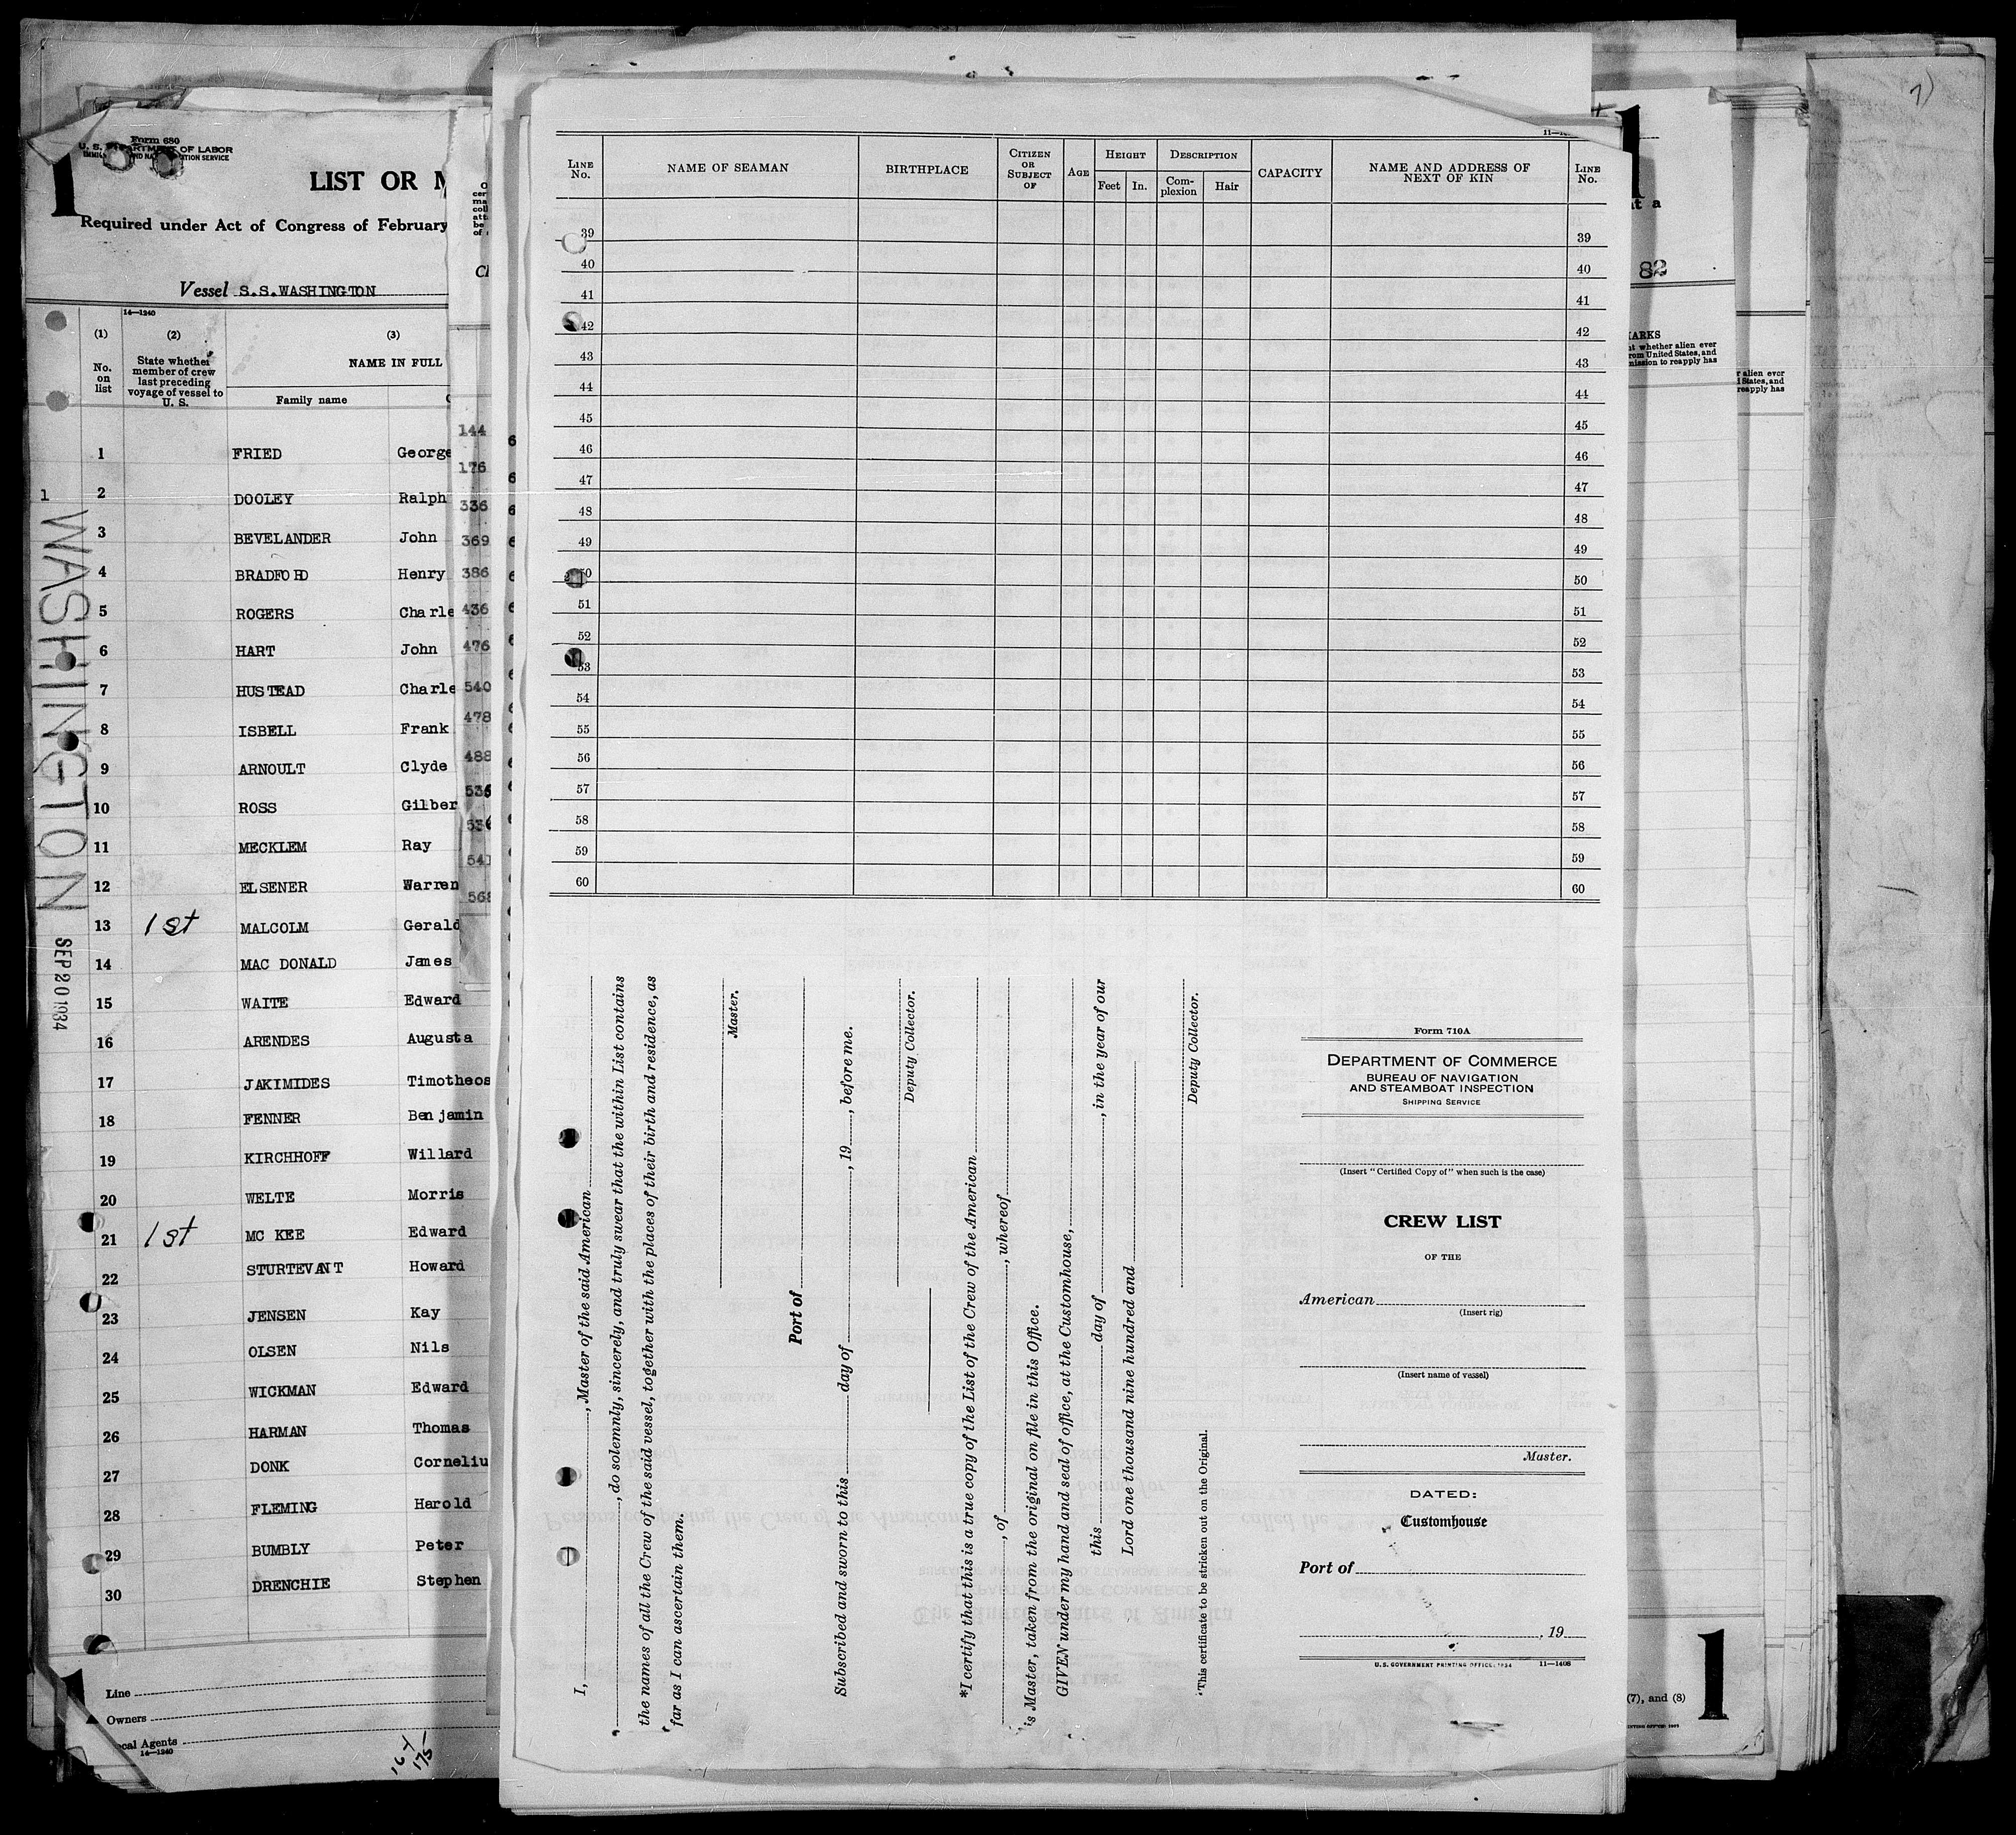 1
Form 680
U. S. DEPARTMENT OF LABOR
LIST OR M
Required under Act of Congress of February
Vessel S.S.WASHINGTON
14—1240
(1) (2) (3)
No. on list
State whether member of crew last preceding voyage of vessel to U. S.
NAME IN FULL
Family name
1 FRIED George
2 DOOLEY Ralph
3 BEVELANDER John
4 BRADFORD Henry
5 ROGERS Charle
6 HART John
7 HUSTEAD Charle
8 ISBELL Frank
9 ARNOULT Clyde
10 ROSS Gilber
11 MECKLEM Ray
12 ELSENER Warren
13 1st MALCOLM Gerald
14 MAC DONALD James
15 WAITE Edward
16 ARENDES Augusta
17 JAKIMIDES Timotheos
18 FENNER Benjamin
19 KIRCHHOFF Willard
20 WELTE Morris
21 1st MC KEE Edward
22 STURTEVANT Howard
23 JENSEN Kay
24 OLSEN Nils
25 WICKMAN Edward
26 HARMAN Thomas
27 DONK Corneliu
28 FLEMING Harold
29 BUMBLY Peter
30 DRENCHIE Stephen
1
WASHINGTON
SEP 20 1934
Line
Owners
Local Agents
14—1240
144
176
336
369
386
436
476
540
478
488
536
536
541
568
LINE No.
NAME OF SEAMAN
BIRTHPLACE
CITIZEN OR SUBJECT OF
AGE
HEIGHT
Feet In.
DESCRIPTION
Complexion Hair
CAPACITY
NAME AND ADDRESS OF NEXT OF KIN
LINE No.
39 39
40 40
41 41
42 42
43 43
44 44
45 45
46 46
47 47
48 48
49 49
50 50
51 51
52 52
53 53
54 54
55 55
56 56
57 57
58 58
59 59
60 60
I, , Master of the said American
, do solemnly, sincerely, and truly swear that the within List contains
the names of all the Crew of the said vessel, together with the places of their birth and residence, as
far as I can ascertain them.
Master.
Port of
Subscribed and sworn to this day of , 19 , before me.
Deputy Collector.
*I certify that this is a true copy of the List of the Crew of the American
, of , whereof
is Master, taken from the original on file in this Office.
GIVEN under my hand and seal of office, at the Customhouse,
this day of , in the year of our
Lord one thousand nine hundred and
Deputy Collector.
*This certificate to be stricken out on the Original.
Form 710A
DEPARTMENT OF COMMERCE
BUREAU OF NAVIGATION
AND STEAMBOAT INSPECTION
SHIPPING SERVICE
(Insert "Certified Copy of" when such is the case)
CREW LIST
OF THE
American
(Insert rig)
(Insert name of vessel)
Master.
DATED:
Customhouse
Port of
, 19
U.S. GOVERNMENT PRINTING OFFICE: 1934 11—1408
1
at a
82
ARKS
whether alien ever
rom United States, and
mission to reapply has
r alien ever
States, and
reapply has
(7), and (8)
1